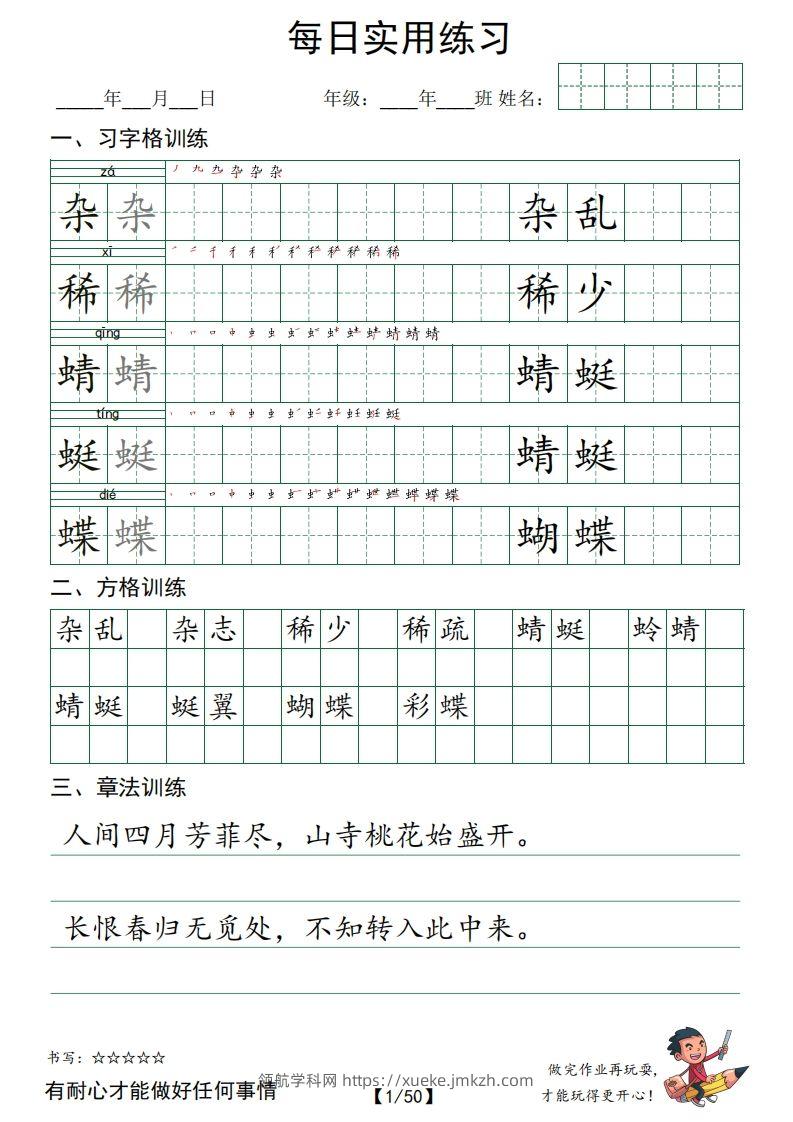 每日实用练习
_____年___月___日 年级：____年____班 姓名：
一、习字格训练
zá
杂 杂 杂 乱
xī
稀 稀 稀 少
qīng
蜻 蜻 蜻 蜓
tíng
蜓 蜓 蜻 蜓
dié
蝶 蝶 蝴 蝶
二、方格训练
杂乱 杂志 稀少 稀疏 蜻蜓 蛉蜻
蜻蜓 蜓翼 蝴蝶 彩蝶
三、章法训练
人间四月芳菲尽，山寺桃花始盛开。
长恨春归无觅处，不知转入此中来。
书写：☆☆☆☆☆
有耐心才能做好任何事情
领航学科网 https://xueke.jmkzh.com
【1/50】
做完作业再玩耍，
才能玩得更开心！